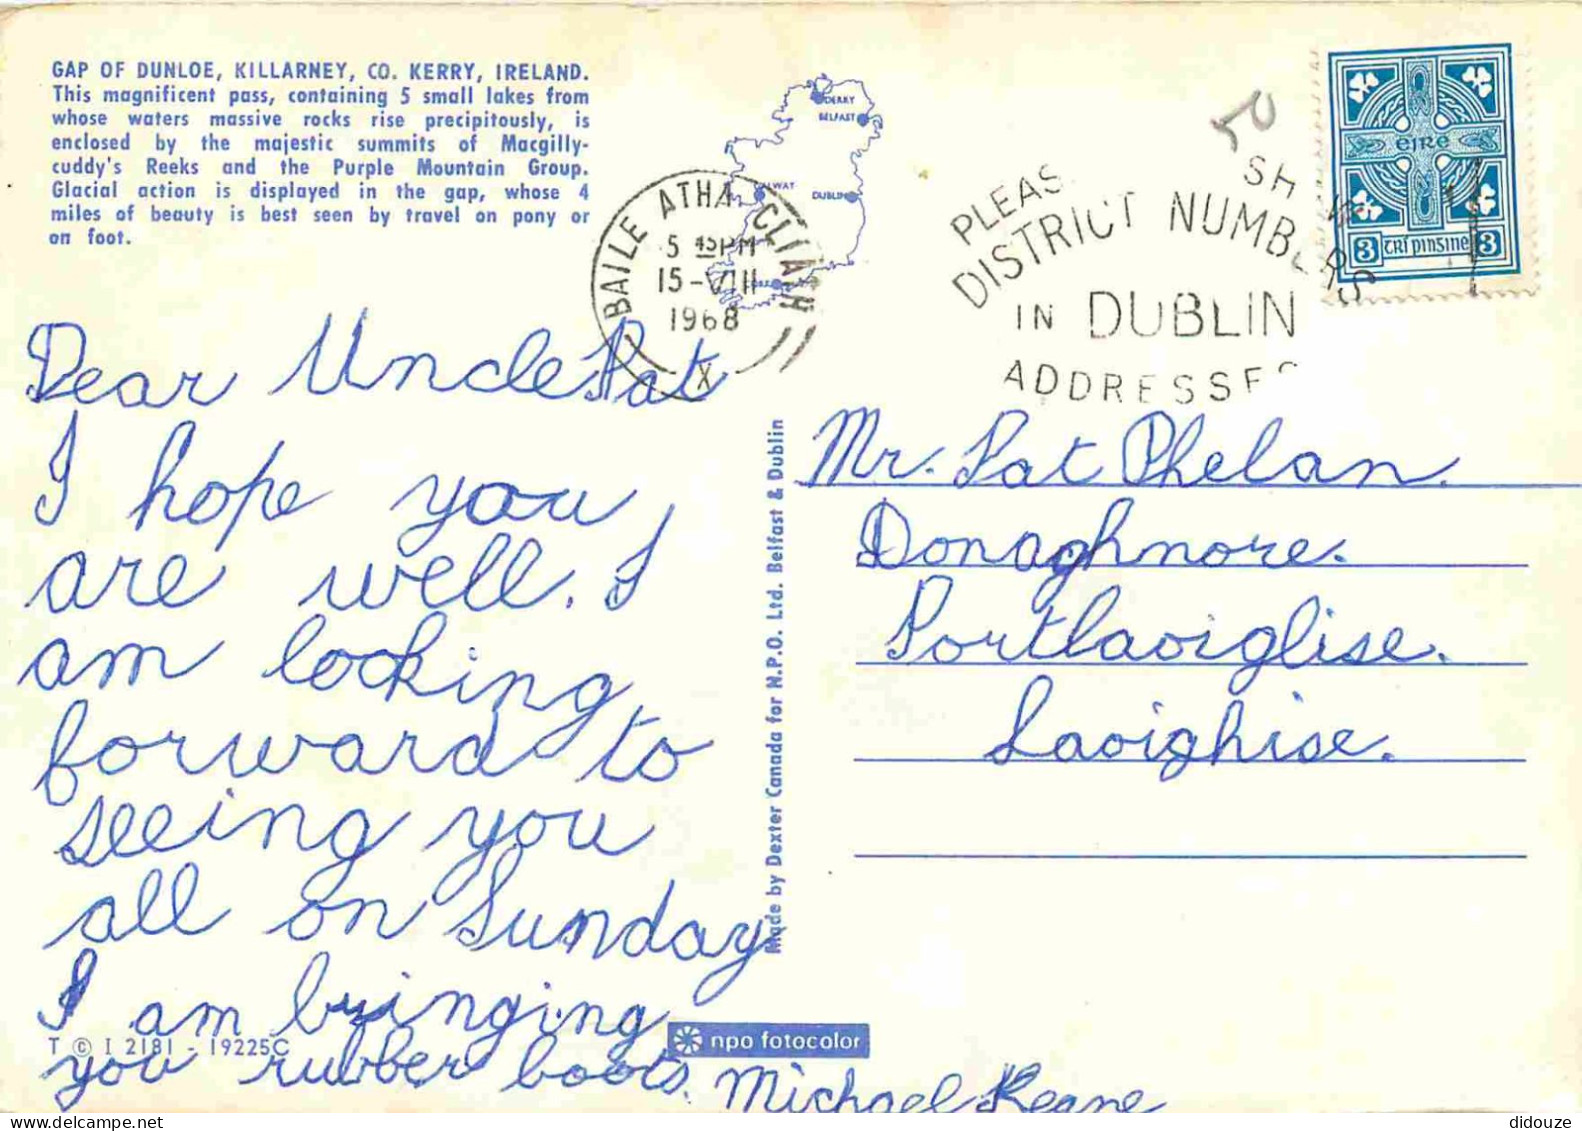 GAP OF DUNLOE, KILLARNEY, CO. KERRY, IRELAND.
This magnificent pass, containing 5 small lakes from
whose waters massive rocks rise precipitously, is
enclosed by the majestic summits of Macgilly-
cuddy's Reeks and the Purple Mountain Group.
Glacial action is displayed in the gap, whose 4
miles of beauty is best seen by travel on pony or
on foot.
DERRY
BELFAST
DUBLIN
BAILE ATHA CLIATH
5 45 PM
15-VIII
1968
X
PLEAS SH W
DISTRICT NUMBERS
IN DUBLIN
ADDRESSES
EIRE
3 TRÍ PINSINE 3
Dear Uncle Pat
I hope you
are well. I
am looking
forward to
seeing you
all on Sunday
I am bringing
you rubber boots.
Michael Keane
Made by Dexter Canada for N.P.O. Ltd. Belfast & Dublin
Mr. Pat Phelan.
Donaghmore.
Portlaoiglise.
Laoighise.
T © I 2181 - 19225C
npo fotocolor
didouze